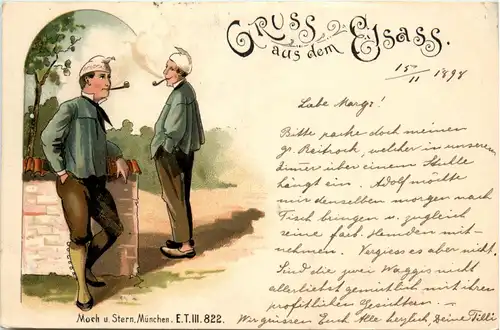 Gruss
aus dem Elsass.
15/11 1898
Liebe Margs!
Bitte packe doch meinen
gr. Reitrock, welcher in unserem
Zimer über einem Stuhle
hängt ein. Adolf möchte
mir denselben morgen nach
Tisch bringen u. zugleich
seine farb. Hemden mit-
nehmen. Vergiess es aber nicht.
Sind die zwei Waggis nicht
allerliebst gemütlich mit ihren
profitlichen Gesichten.
Wir grüssen Euch Alle herzlich Deine Tilli
Moch u. Stern, München. E.T.III. 822.